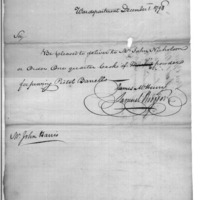 War department December 5 1798
Sir,
Be pleased to deliver to Mr John Nicholson
or Order One quarter Cask of powder
for proving Pistol Barrells
James McHenry
Samuel Hodgdon
Mr John Harris